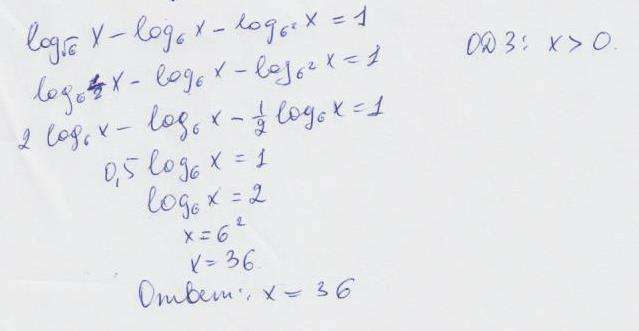 log_√6 x − log_6 x − log_6² x = 1
ОДЗ: x > 0.
log_6^½ x − log_6 x − log_6² x = 1
2 log_6 x − log_6 x − ½ log_6 x = 1
0,5 log_6 x = 1
log_6 x = 2
x = 6²
x = 36
Ответ: x = 36